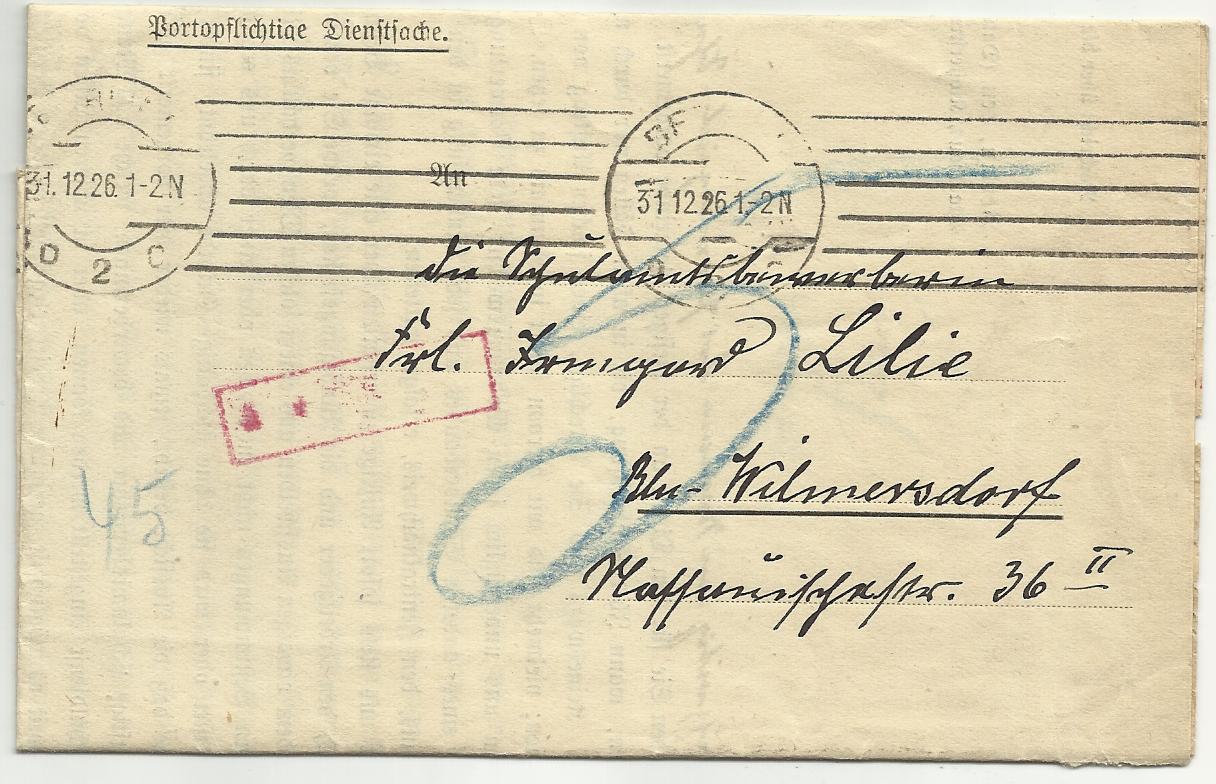 Portopflichtige Dienstsache.
31.12.26. 1-2 N
2 C
31 12 26 1-2 N
An
die Schulamtsbewerberin
Frl. Irmgard Lilie
Bln-Wilmersdorf
Nassauischestr. 36 II
45